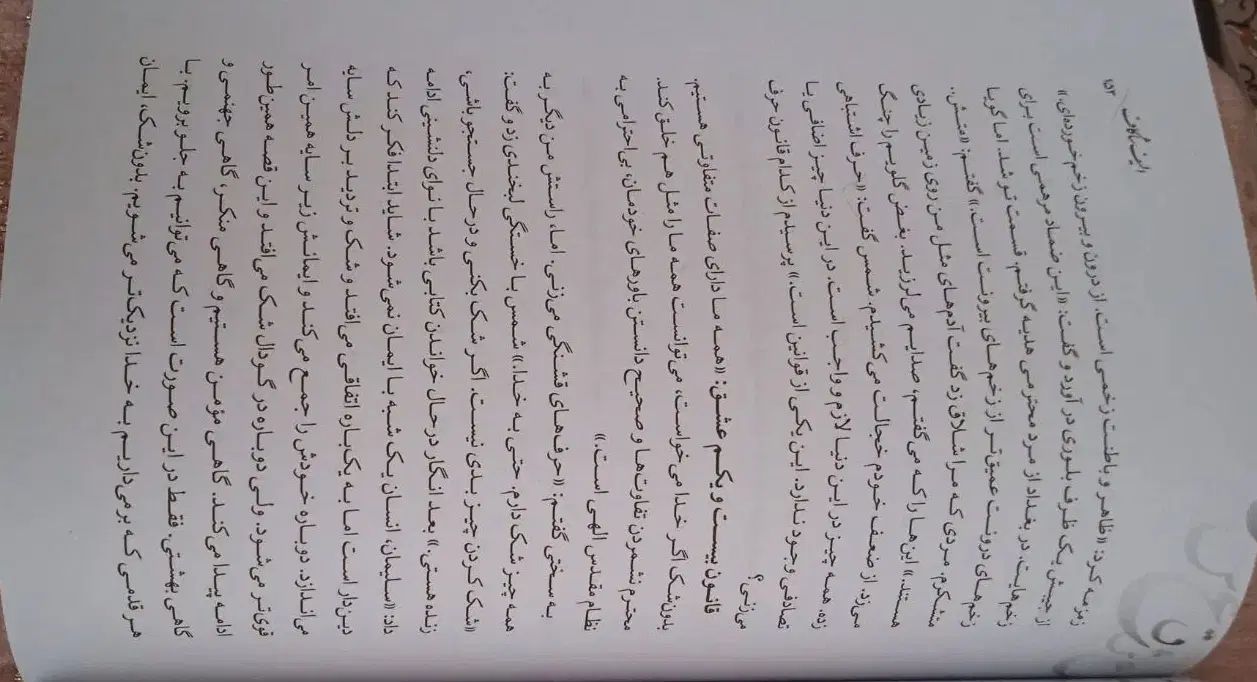 ۱۵۲ / الیف شافاک
زمزمه کرد: «ظاهر و باطنت زخمی است. از درون و بیرون زخم خورده‌ای.»
از جیبش یک ظرف بلوری در آورد و گفت: «این ضماد مرهمی است برای
زخم‌هایت. در بغداد از مرد محترمی هدیه گرفتم. قسمت تو شد. اما گویا
زخم‌های درونت عمیق‌تر از زخم‌های بیرونت است.» گفتم: «متش.
متشکرم. مردی که مرا شلاق زد گفت آدم‌های مثل من روی زمین زیادی
هستند.» این‌ها را که می‌گفتم، صدایم می‌لرزید. بغض گلویم را چنگ
می‌زد. از ضعف خودم خجالت می‌کشیدم. شمس گفت: «حرف اشتباهی
زده. همه چیز در این دنیا لازم و واجب است. در این دنیا چیز اضافی یا
تصادفی وجود ندارد. این یکی از قوانین است.» پرسیدم از کدام قانون حرف
می‌زنی؟
قانون بیست و یکم عشق: «همه ما دارای صفات متفاوتی هستیم.
بدون‌شک اگر خدا می‌خواست، می‌توانست همه ما را مثل هم خلق کند.
محترم نشمردن تفاوت‌ها و صحیح دانستن باورهای خودمان، بی‌احترامی به
نظام مقدس الهی است.»
به سختی گفتم: «حرف‌های قشنگی می‌زنی. اما، راستش من دیگر به
همه چیز شک دارم. حتی به خدا.» شمس با خستگی لبخندی زد و گفت:
«شک کردن چیز بدی نیست. اگر شک بکنی و در حال جستجو باشی،
زنده هستی.» بعد انگار در حال خواندن کتابی باشد با نوای دلنشینی ادامه
داد: «سلیمان، انسان یک شبه با ایمان نمی‌شود. شاید ابتدا فکر کند که
دین‌دار است اما به یک‌باره اتفاقی می‌افتد و شک و تردید بر دلش سایه
می‌اندازد. دوباره خودش را جمع می‌کند و ایمانش زیر سایه همین امر
قوی‌تر می‌شود. ولی دوباره در گودال شک می‌افتد و این قصه همین طور
ادامه پیدا می‌کند. گاهی مؤمن هستیم و گاهی منکر، گاهی جهنمی و
گاهی بهشتی. فقط در این صورت است که می‌توانیم به جلو برویم. با
هر قدمی که بر می‌داریم به خدا نزدیک‌تر می‌شویم. بدون‌شک، ایمان